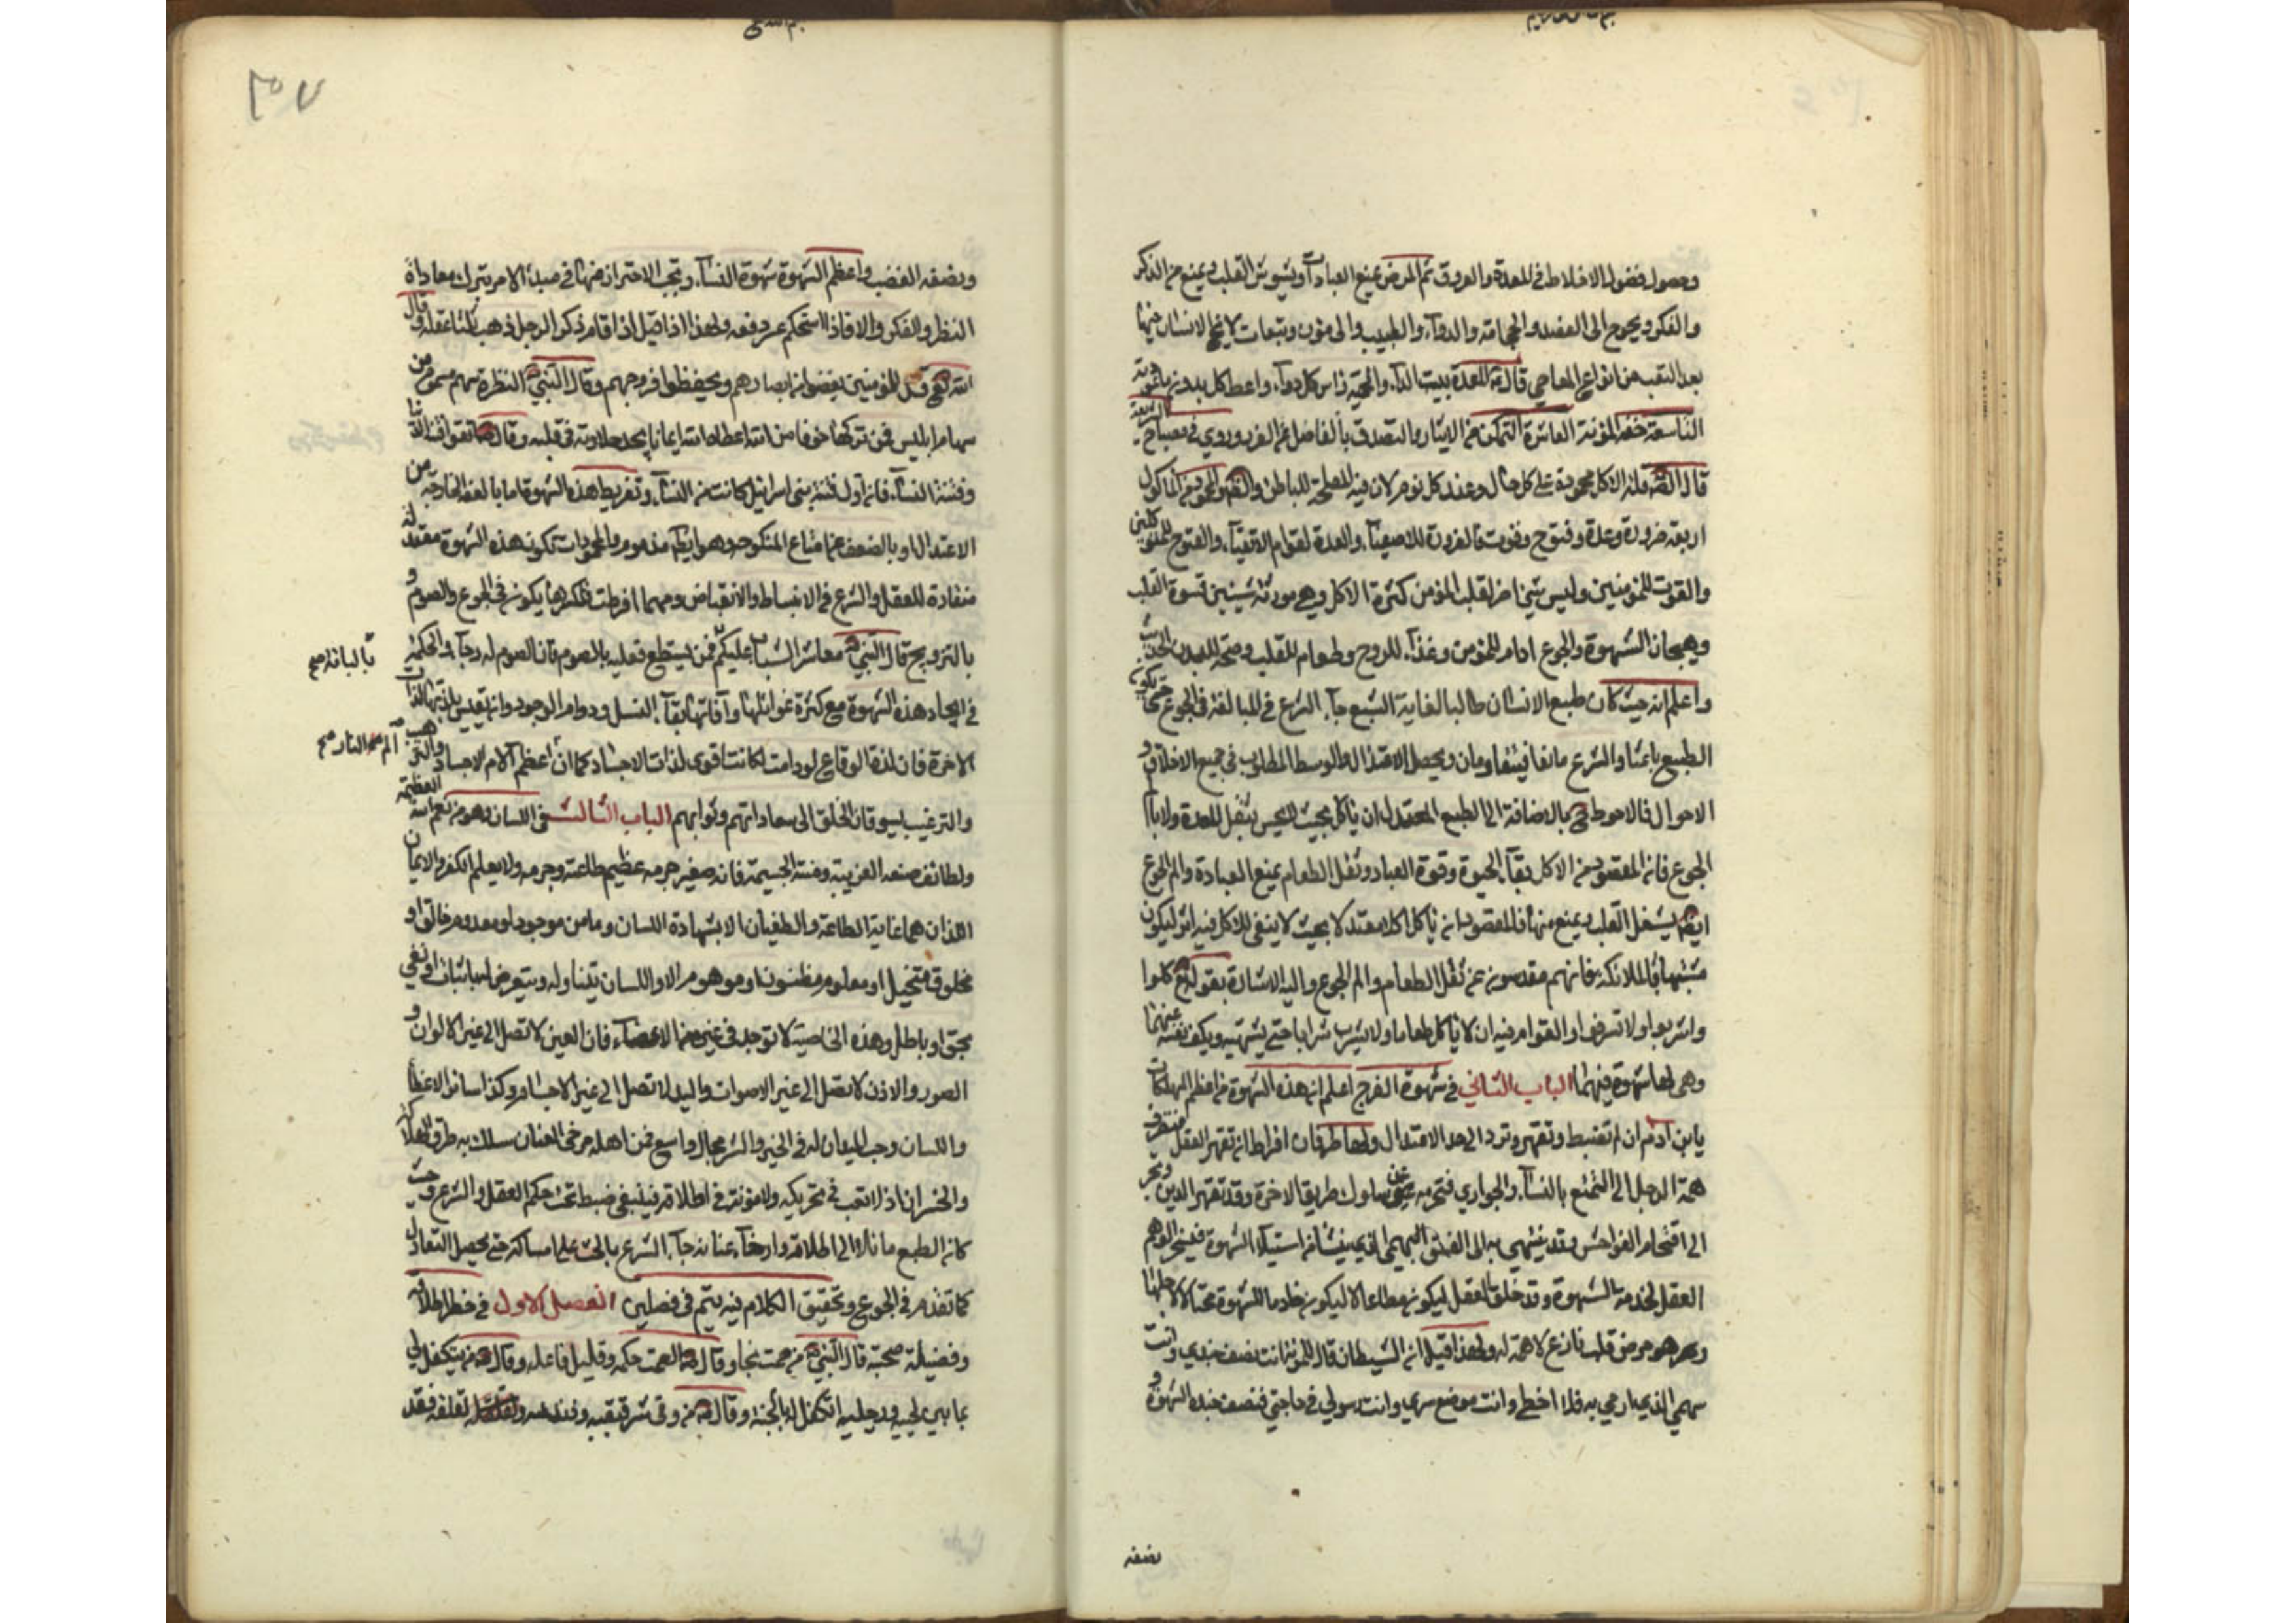 وحصول فضول الاخلاط في المعدة والعروق ثم المرض يمنع العبادات ويشوش القلب ويمنع من الذكر
والفكر ويحوج الى الفصد والحجامة والدواء والطبيب والى مؤن وتبعات لا يخلو الانسان منها
بعد التعب من انواع المعاصي قال المعدة بيت الداء والحمية راس كل دواء واعط كل بدن ما عودته
التاسعة خفة المؤنة العاشرة التمكن من الايثار والتصدق بالفاضل على الغير وروي في مصباح الشريعة
قال الصادق قلة الاكل محمودة على كل حال وعند كل قوم لان فيه المصلحة للباطن والظاهر والمحمود من الماكول
اربعة ضرورة وعدة وفتوح وقوت فالضرورة للاصفياء والعدة لقوام الاتقياء والفتوح للمتوكلين
والقوت للمؤمنين وليس شئ اضر لقلب المؤمن من كثرة الاكل وهي مورثة شيئين قسوة القلب
وهيجان الشهوة والجوع ادام للمؤمن وغذاء للروح وطعام للقلب وصحة للبدن الحديث
واعلم انه حيث كان طبع الانسان طالبا لغاية الشبع جاء الشرع في المبالغة في الجوع حتى يكون
الطبع باعثا والشرع مانعا فيتقاومان ويحصل الاعتدال والوسط المطلوب في جميع الاخلاق و
الاحوال فالاحوط بالاضافة الى الطبع المعتدل ان ياكل بحيث لا يحس بثقل المعدة ولا بالم
الجوع فان المقصود من الاكل بقاء الحيوة وقوة العباد وثقل الطعام يمنع العبادة والم الجوع
ايضا يشغل القلب ويمنع منها فالمقصود ان ياكل اكلا معتدلا بحيث لا يبقى للاكل فيه اثر ليكون
متشبها بالملائكة فانهم مقدسون عن ثقل الطعام والم الجوع واليه الاشارة بقوله تع كلوا
واشربوا ولا تسرفوا والقوام فيه ان لا ياكل طعاما ولا يشرب شرابا حتى يشتهيه ويكف نفسه عنهما
وهي لها شهوة فيهما الباب الثاني في شهوة الفرج اعلم ان هذه الشهوة من اعظم المهلكات
يا بن ادم ان لم تضبط وتقهر وترد الى حد الاعتدال ولها طرفان افراط ان تقهر العقل فتصرف
همة الرجل الى التمتع بالنساء والجواري فتحرمه عن سلوك طريق الاخرة وقد تقهر الدين وتجر
الى اقتحام الفواحش وقد ينتهي به الى العشق البهيمي الذي ينشأ من استيلاء الشهوة فيسخر الوهم
العقل لخدمة الشهوة وقد خلق العقل ليكون مطاعا لا ليكون خادما للشهوة محتالا لاجلها
وهو مرض قلب فارغ لا همة له ولهذا قيل ان الشيطان قال للمرئة انت نصف جندي وانت
سهمي الذي ارمي به فلا اخطي وانت موضع سري وانت رسولي في حاجتي فنصف جنده الشهوة
ونصفه
٣٥٧
ونصفه الغضب واعظم الشهوة شهوة النساء ويجب الاحتراز منها في مبدأ الامر بترك معاداة
النظر والفكر والا فاذا استحكم عسر دفعه ولهذا اذا قيل اذا قام ذكر الرجل ذهب ثلثا عقله وقال
الله تع قل للمؤمنين يغضوا من ابصارهم ويحفظوا فروجهم وقال النبي النظرة سهم مسموم من
سهام ابليس فمن تركها خوفا من الله اعطاه الله ايمانا يجد حلاوته في قلبه وقال اتقوا فتنة الدنيا
وفتنة النساء فان اول فتنة بني اسرائيل كانت من النساء وتفريط هذه الشهوة اما بالعفة الخارجة عن
الاعتدال او بالضعف عن امتاع المنكوحة وهو ايضا مذموم والمحمود ان تكون هذه الشهوة معتدلة
منقادة للعقل والشرع في الانبساط والانقباض ومهما افرطت فكسرها يكون في الجوع والصوم و
بالتزويج قال النبي معاشر الشباب عليكم فمن لم يستطع فعليه بالصوم فان الصوم له وجاء والحكمة
بالباءة صح
في ايجاد هذه الشهوة مع كثرة غوائلها وآفاتها بقاء النسل ودوام الوجود وان يقيس بلذتها لذات
الاخرة فان لذة الوقاع لو دامت لكانت اقوى لذات الاجساد كما ان اعظم آلام الاجساد والترهيب
الم النار صح
والترغيب يسوقان الخلق الى سعاداتهم وثوابهم الباب الثالث في اللسان وهو من نعم الله العظيمة
ولطائف صنعه الغريبة ومنته الجسيمة فانه صغير جرمه عظيم طاعته وجرمه ولا يعلم الكفر والايمان
اللذان هما غاية الطاعة والطغيان الا بشهادة اللسان وما من موجود او معدوم خالق او
مخلوق متخيل او معلوم مظنون او موهوم الا واللسان يتناوله ويتعرض له باثبات او نفي
بحق او باطل وهذه الخاصية لا توجد في غيره من الاعضاء فان العين لا تصل الى غير الالوان و
الصور والاذن لا تصل الى غير الاصوات واليد لا تصل الى غير الاجسام وكذا سائر الاعضاء
واللسان رحب الميدان له في الخير والشر مجال واسع فمن اهمله مرخى العنان سلك به طرق الهلاك
والخسران اذ لا تعب في تحريكه ولا مؤنة في اطلاقه فينبغي ضبط تحت حكم العقل والشرع وحيث
كان الطبع مائلا الى اطلاقه وارخاء عنانه جاء الشرع بالحث على امساكه حتى يحصل التعادل
كما تقدم في الجوع وتحقيق الكلام فيه يتم في فصلين الفصل الاول في خطر اطلاقه
وفضيلة صمته قال النبي من صمت نجا وقال الصمت حكم وقليل فاعله وقال من يتكفل لي
بما بين لحييه ورجليه اتكفل له بالجنة وقال من وقى شر قبقبه وذبذبه ولقلقه فقد